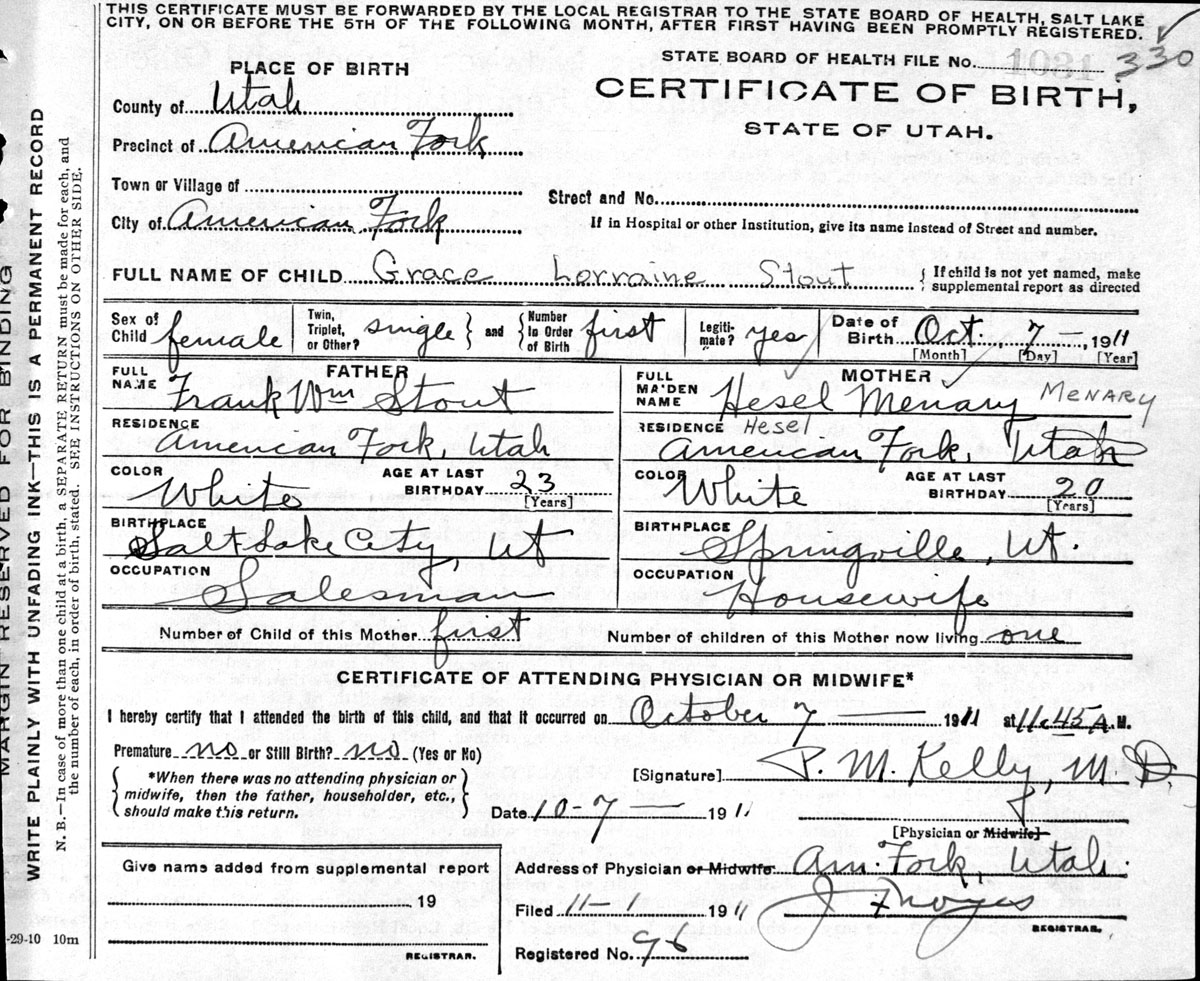 THIS CERTIFICATE MUST BE FORWARDED BY THE LOCAL REGISTRAR TO THE STATE BOARD OF HEALTH, SALT LAKE
CITY, ON OR BEFORE THE 5TH OF THE FOLLOWING MONTH, AFTER FIRST HAVING BEEN PROMPTLY REGISTERED.
STATE BOARD OF HEALTH FILE No. 1031 330
PLACE OF BIRTH
CERTIFICATE OF BIRTH,
STATE OF UTAH.
County of Utah
Precinct of American Fork
Town or Village of
Street and No.
City of American Fork
If in Hospital or other Institution, give its name instead of Street and number.
FULL NAME OF CHILD Grace Lorraine Stout
If child is not yet named, make
supplemental report as directed
Sex of Child female
Twin, Triplet, or Other? single
and Number In Order of Birth first
Legitimate? yes
Date of Birth Oct. 7 — , 1911
[Month] [Day] [Year]
FATHER
FULL NAME Frank Wm Stout
RESIDENCE American Fork, Utah
COLOR White
AGE AT LAST BIRTHDAY 23 [Years]
BIRTHPLACE Salt Lake City, Ut
OCCUPATION Salesman
MOTHER
FULL MAIDEN NAME Hesel Menary MENARY
Hesel
RESIDENCE American Fork, Utah
COLOR White
AGE AT LAST BIRTHDAY 20 [Years]
BIRTHPLACE Springville, Ut.
OCCUPATION Housewife
Number of Child of this Mother first
Number of children of this Mother now living one
CERTIFICATE OF ATTENDING PHYSICIAN OR MIDWIFE*
I hereby certify that I attended the birth of this child, and that it occurred on October 7 — 1911 at 11:45 A.M.
Premature no or Still Birth? no (Yes or No)
*When there was no attending physician or
midwife, then the father, householder, etc.,
should make this return.
[Signature] P. M. Kelly, M.D.
Date 10-7 — 1911
[Physician or Midwife]
Give name added from supplemental report
19
REGISTRAR.
Address of Physician or Midwife Am. Fork, Utah.
Filed 11-1 1911
J Noyes
REGISTRAR.
Registered No. 96
MARGIN RESERVED FOR BINDING
WRITE PLAINLY WITH UNFADING INK—THIS IS A PERMANENT RECORD
N. B.—In case of more than one child at a birth, a SEPARATE RETURN must be made for each, and
the number of each, in order of birth, stated. SEE INSTRUCTIONS ON OTHER SIDE.
-29-10 10m